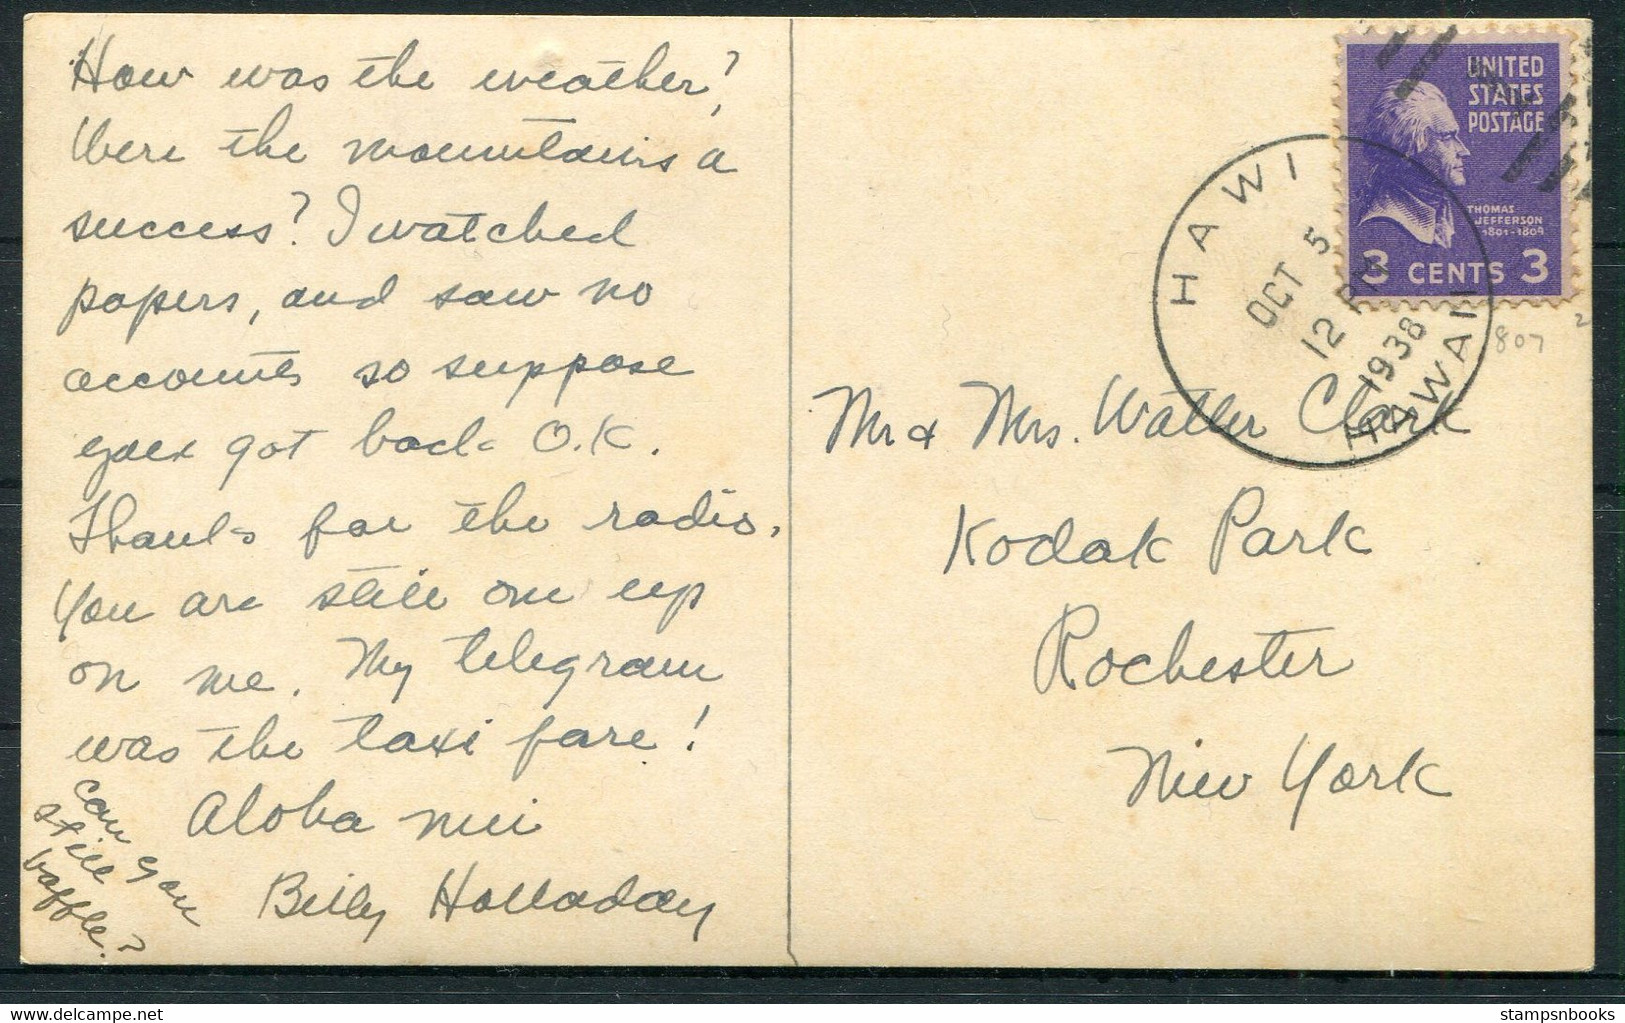 How was the weather?
Were the mountains a
success? I watched
papers, and saw no
accounts so suppose
you got back O.K.
Thanks for the radio.
You are still one up
on me. My telegram
was the taxi fare!
Aloha nui
Billy Holladay
can you
still
baffle?
UNITED
STATES
POSTAGE
THOMAS
JEFFERSON
1801-1809
3 CENTS 3
HAWI
OCT 5
12 PM
1938
HAWAII
807
2
Mr & Mrs. Walter Clark
Kodak Park
Rochester
New York
stampsnbooks